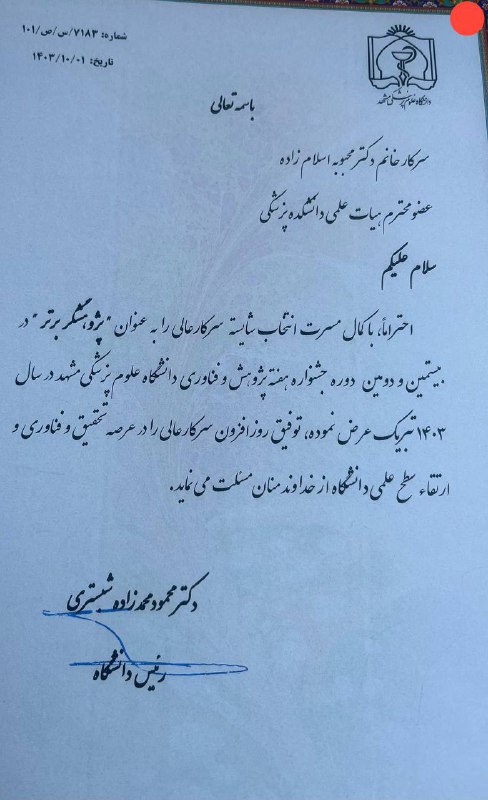 شماره: ۷۱۸۳/س/ص/۱۰۱
تاریخ: ۱۴۰۳/۱۰/۰۱
دانشگاه علوم پزشکی مشهد
باسمه تعالی
سرکار خانم دکتر محبوبه اسلام زاده
عضو محترم هیات علمی دانشکده پزشکی
سلام علیکم
احتراماً، با کمال مسرت انتخاب شایسته سرکارعالی را به عنوان "پژوهشگر برتر" در
بیستمین و دومین دوره جشنواره هفته پژوهش و فناوری دانشگاه علوم پزشکی مشهد در سال
۱۴۰۳ تبریک عرض نموده، توفیق روزافزون سرکارعالی را در عرصه تحقیق و فناوری و
ارتقاء سطح علمی دانشگاه از خداوند منان مسئلت می نماید.
دکتر محمود محمدزاده شبستری
رئیس دانشگاه